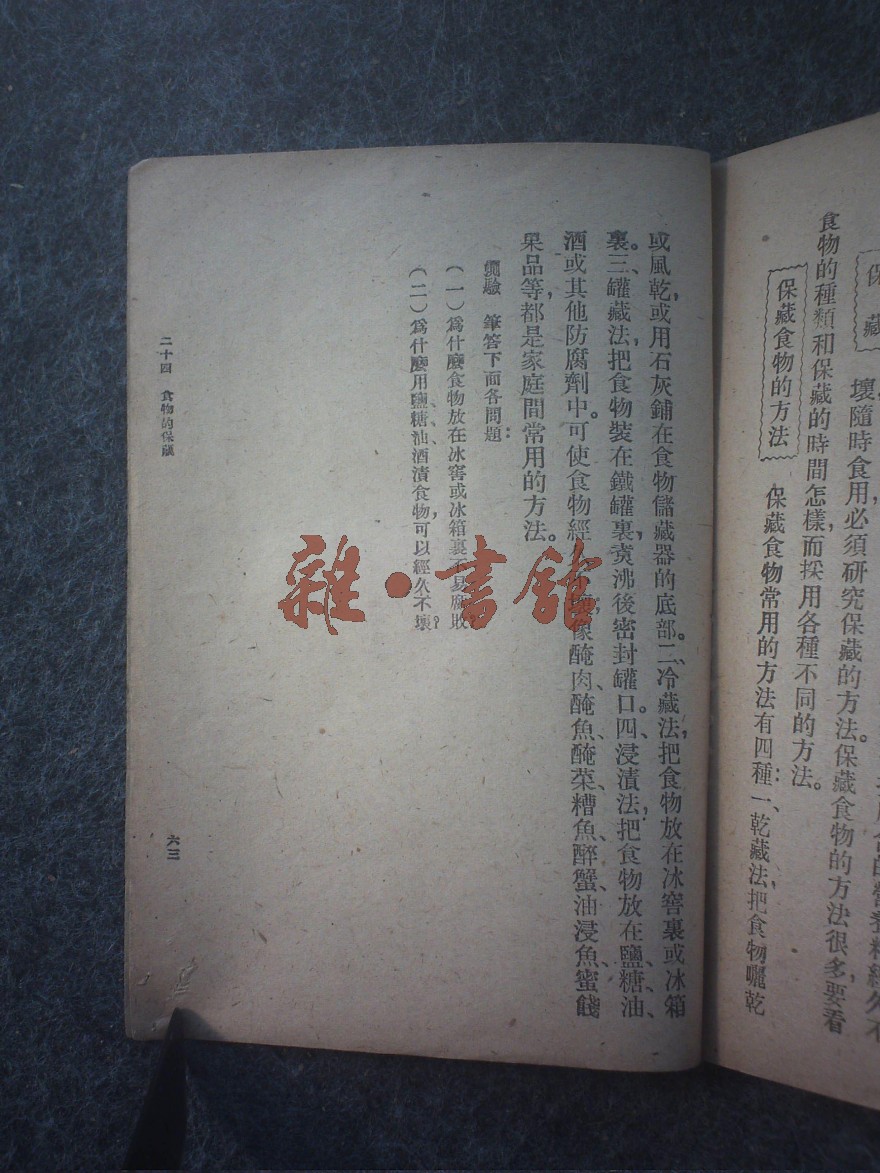 保藏
壞，隨時食用，必須研究保藏的方法。保藏食物的方法很多，要看
食物的種類和保藏的時間怎樣，而採用各種不同的方法。
保藏食物的方法
保藏食物常用的方法有四種：一、乾藏法，把食物曬乾
或風乾，或用石灰鋪在食物儲藏器的底部。二、冷藏法，把食物放在冰窖裏或冰箱
裏。三、罐藏法，把食物裝在鐵罐裏，煑沸後密封罐口。四、浸漬法，把食物放在鹽、糖、油、
酒或其他防腐劑中。可使食物經像醃肉、醃魚、醃菜、糟魚、醉蟹、油浸魚、蜜餞
果品等，都是家庭間常用的方法。
測驗 筆答下面各問題：
（一）爲什麼食物放在冰窖或冰箱裏不易腐敗？
（二）爲什麼用鹽、糖、油、酒漬食物，可以經久不壞？
二十四 食物的保藏
六三
雜·書館